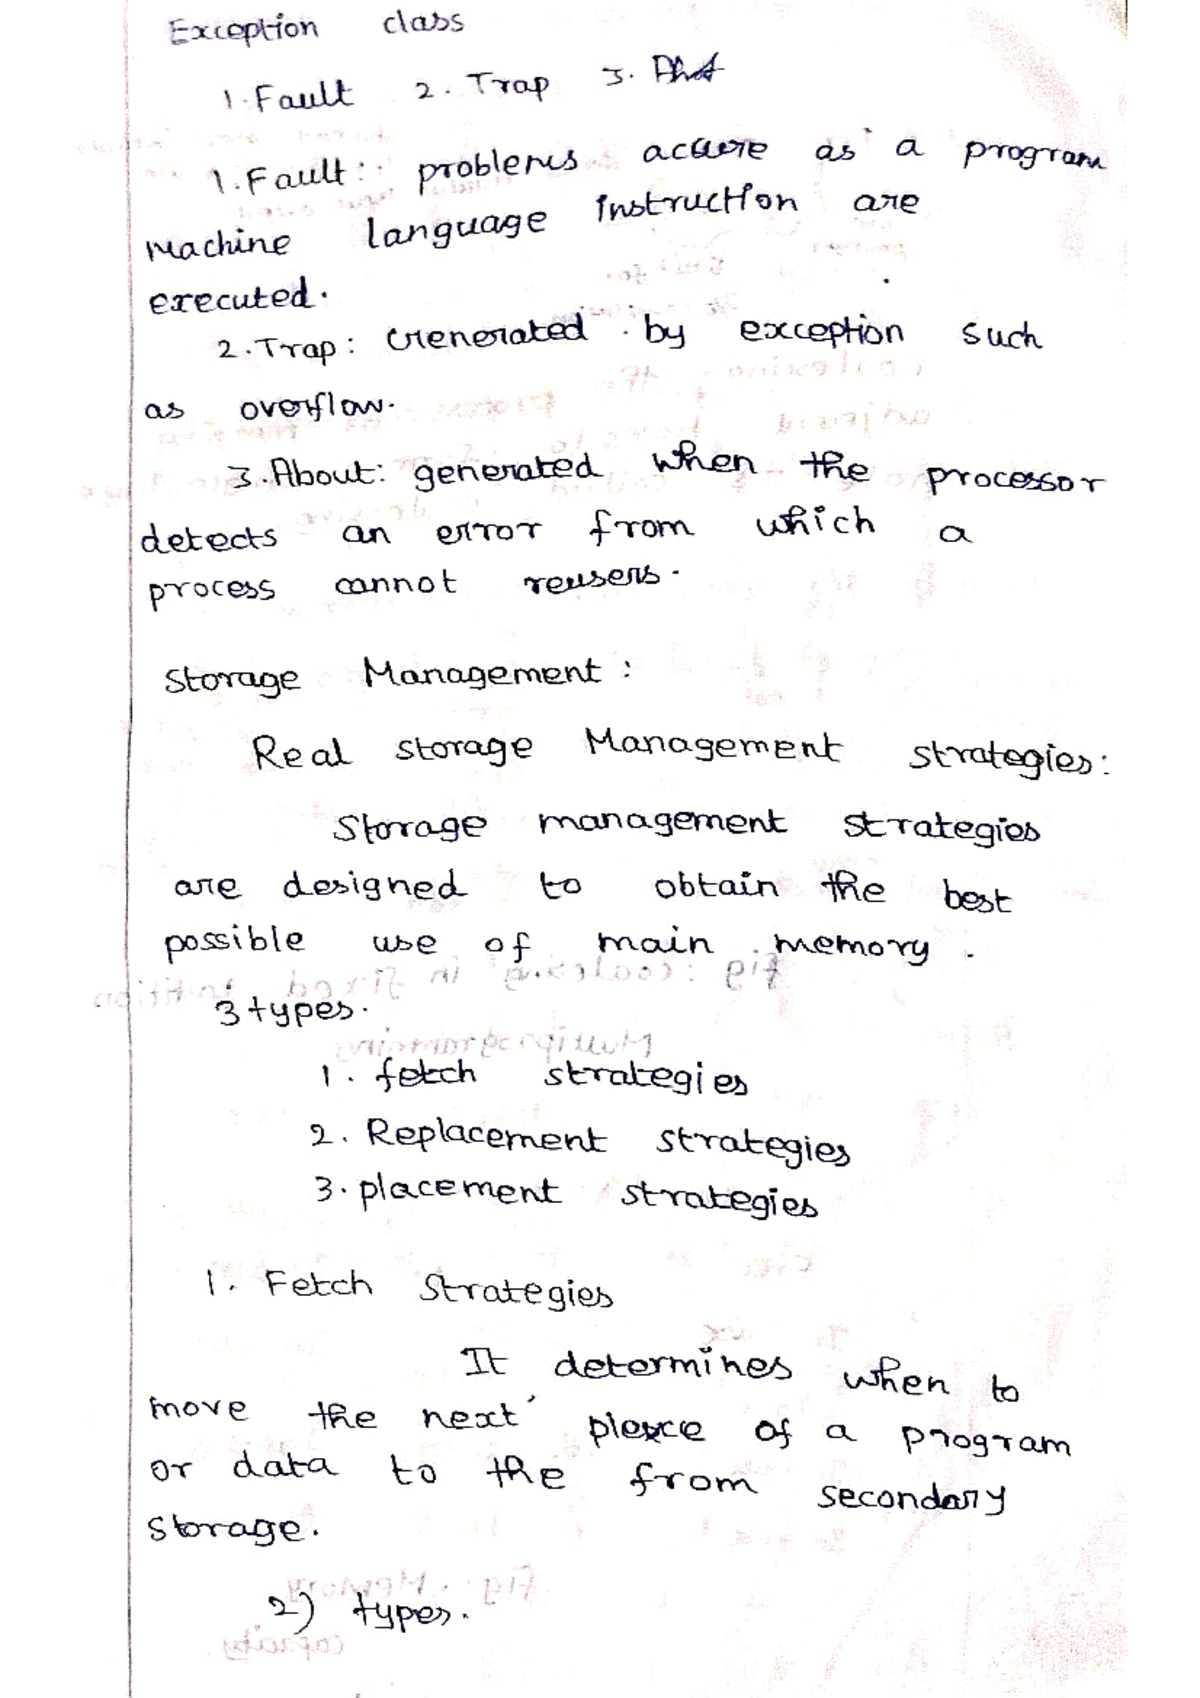 Exception class
1. Fault 2. Trap 3.
1. Fault: problems accure as a program
Machine language instruction are
executed.
2. Trap: Generated by exception such
as overflow.
3. About: generated when the processor
detects an error from which a
process cannot reusers.
Storage Management:
Real storage Management strategies:
Storage management strategies
are designed to obtain the best
possible use of main memory.
3 types.
1. fetch strategies
2. Replacement strategies
3. placement strategies
1. Fetch Strategies
It determines when to
move the next of a program
or data to the from secondary
storage.
2) types.